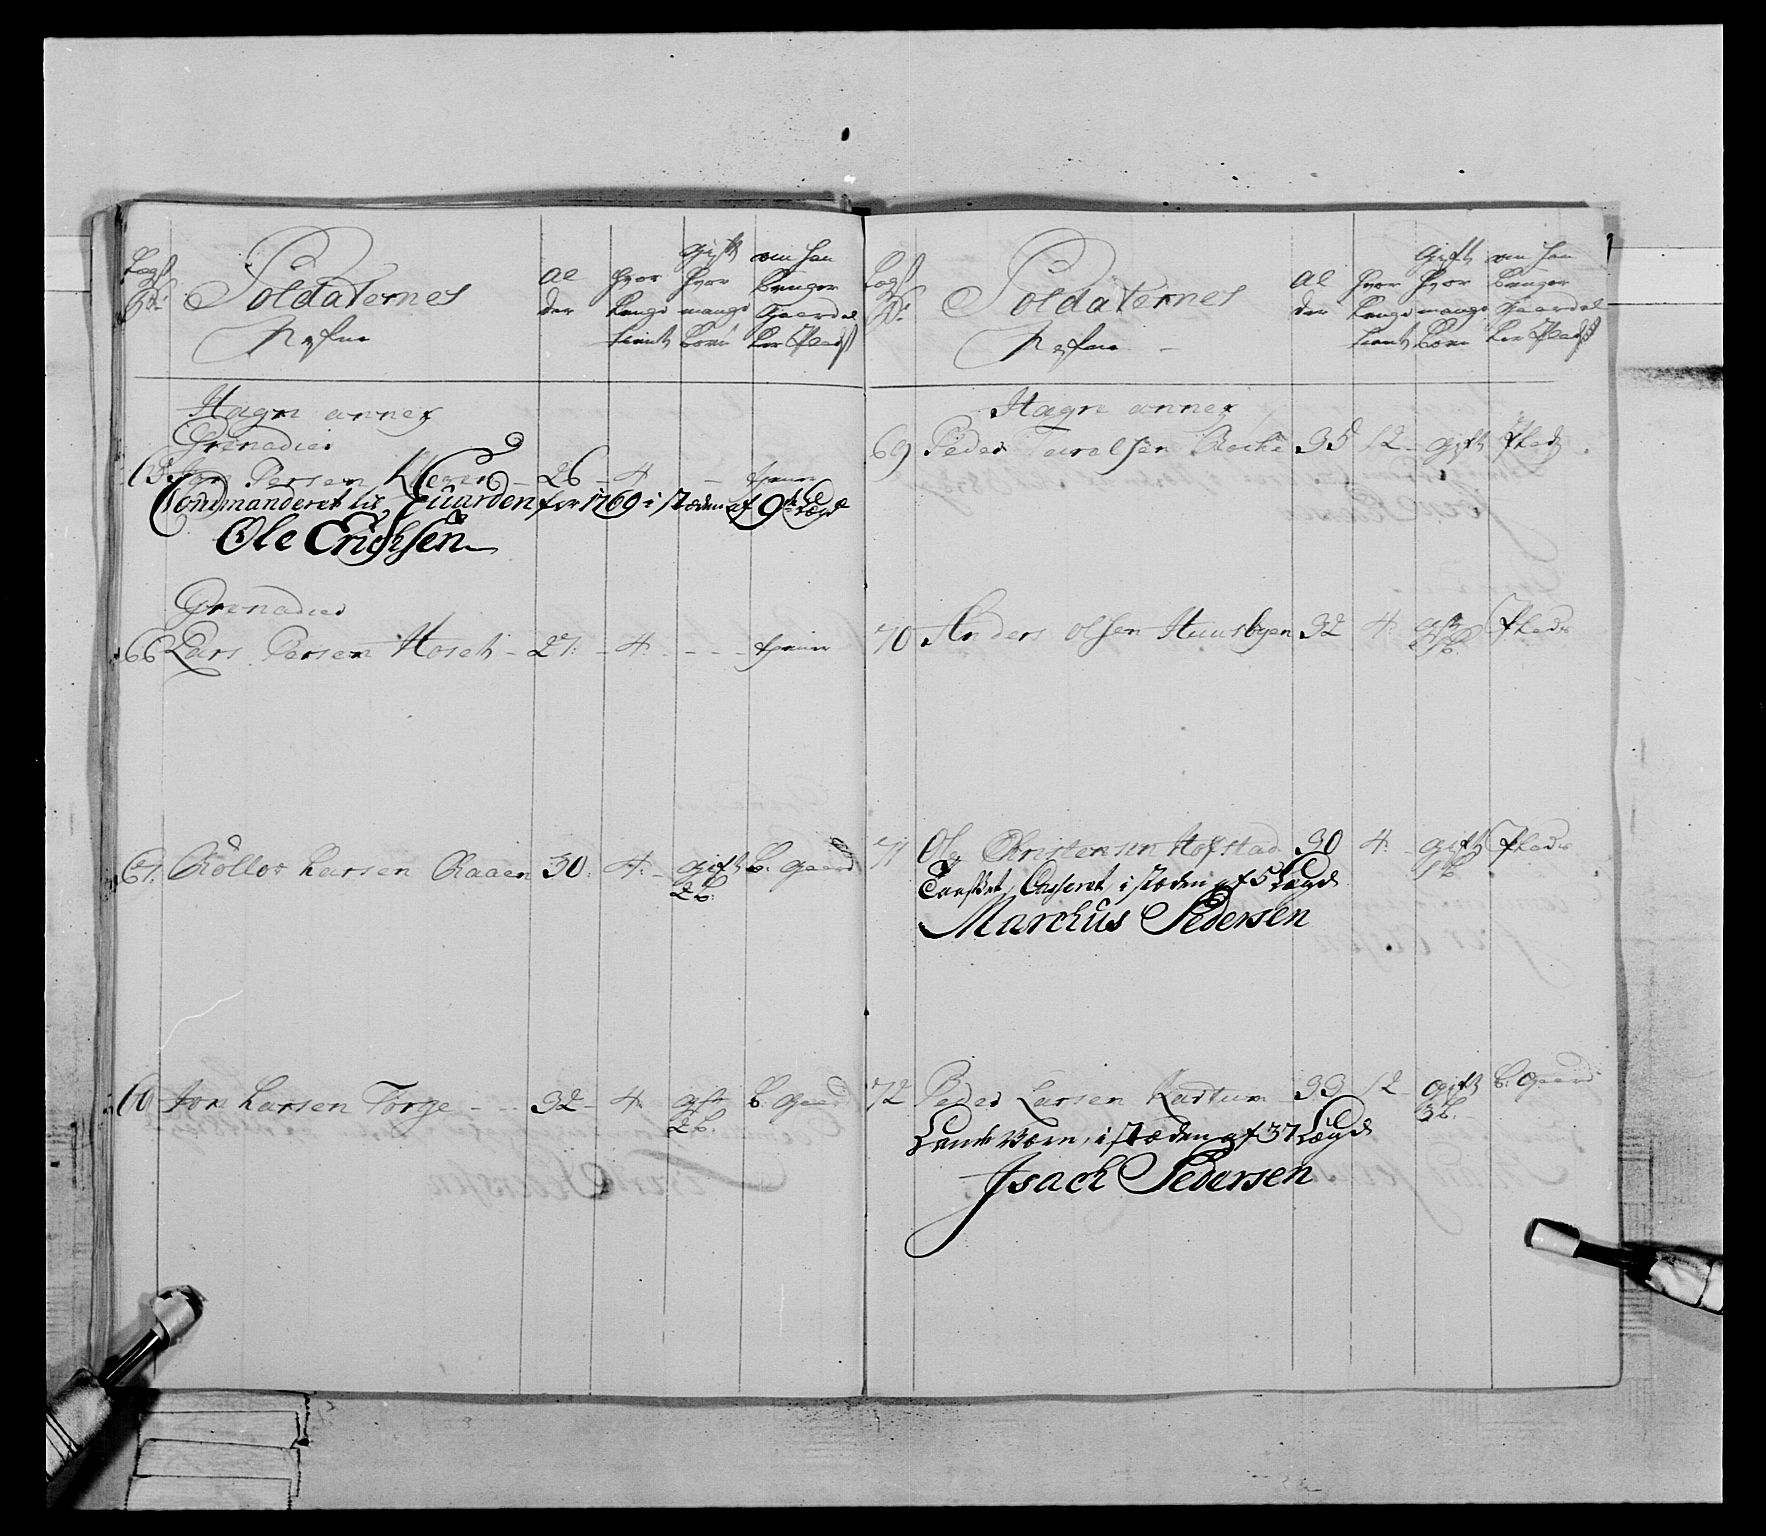 Lægd
No:
Soldaternes
Nafne
Al
der
hvor
længe
tient
gift
hvor
mange
børn
om han
bruger
Gaard el
ler Plads
Hægn annex
Grenadier
65 Jon Persen Klever - 26 - 4 - - tiener
Commanderet til Guarden for 1769 i stæden af 9de Lægd
Ole Erichsen
Grenadier
66 Lars Persen Hoset - 27: - 4: - - - tiener
67. Rollof Larsen Raaen 30: 4: - gift b: gaard
2 b:
68 Jon Larsen Torge - - - 32 - 4: gift b: gaard
2 b:
Lægd
No:
Soldaternes
Nafne
Al
der
hvor
længe
tient
gift
hvor
mange
børn
om han
bruger
Gaard el
ler Plads
Hægn annex
69 Peder 35 12 - gift Plads
70 Anders Olsen Huusbyen 32 4: gift Plads
71 Ole Christensen Hofstad 30 4: - gift Plads
1 b
Casseret, i stæden af 5 Lægd
Marchus Pedersen
72 Peder Larsen Kastum 33 12 - gift b: gaard
3 b:
Land Værn, i stæden af 37 Lægd
Isach Pedersen